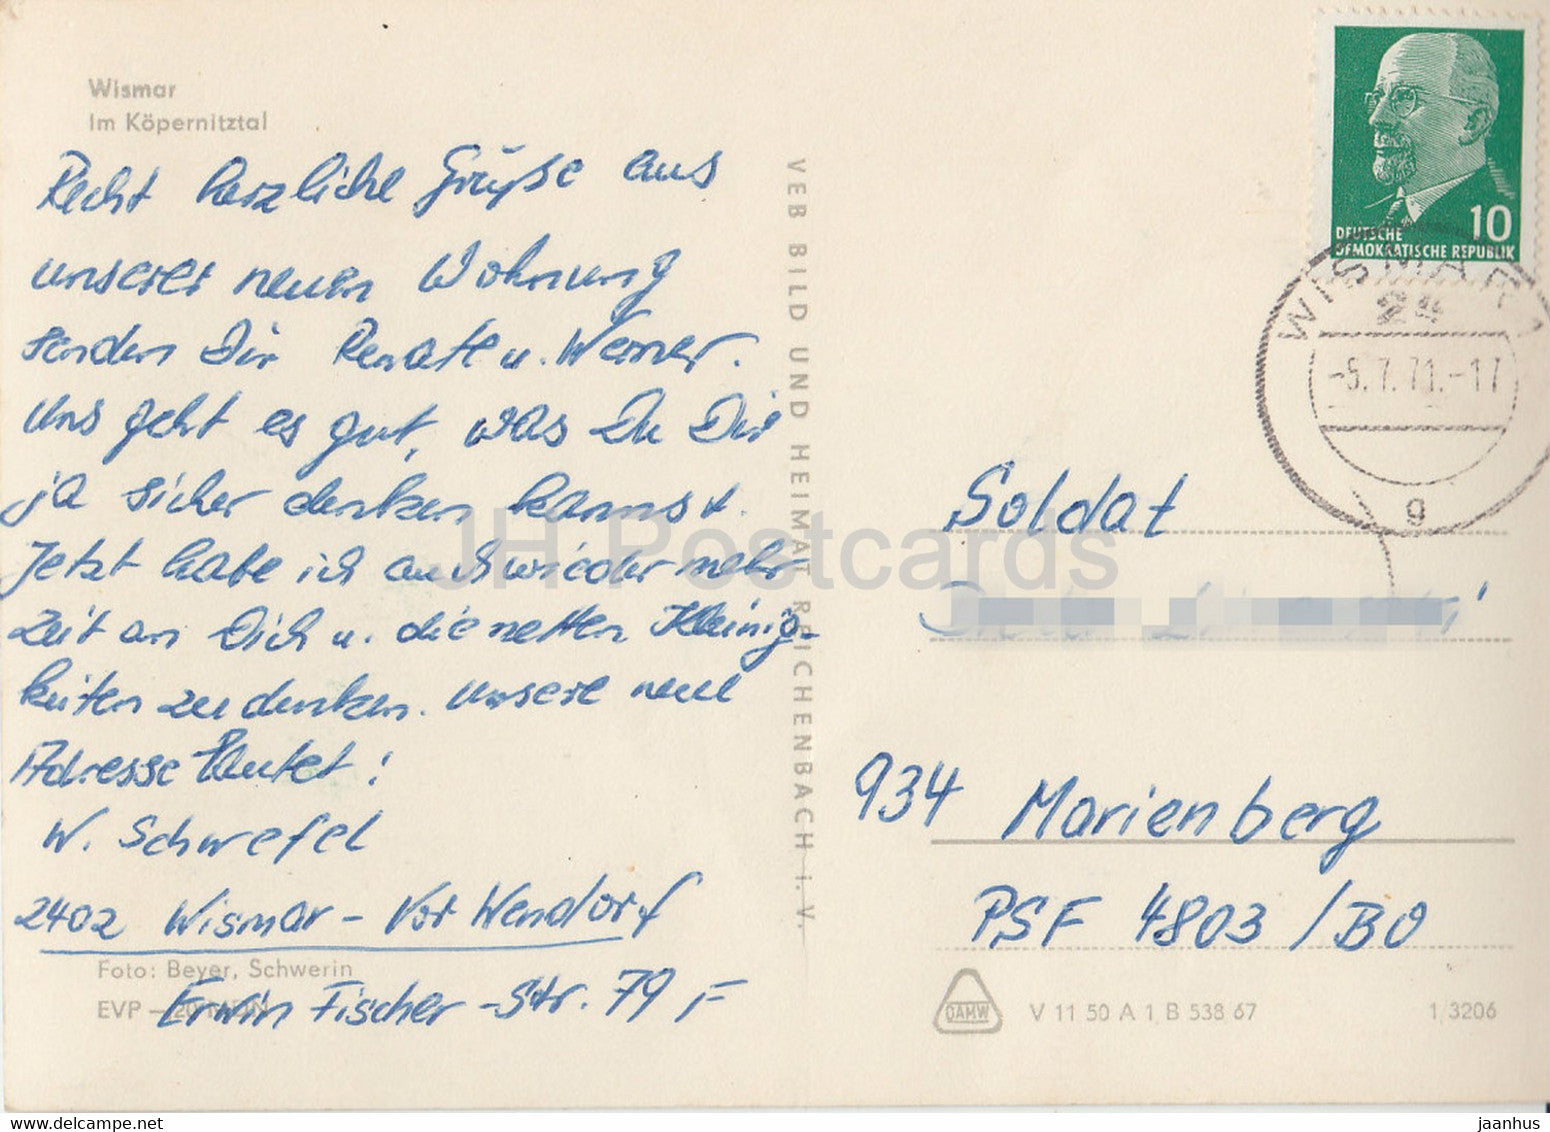 Wismar
Im Köpernitztal
Recht herzliche Grüße aus
unserer neuen Wohnung
senden Dir Renate u. Werner.
Uns geht es gut, was Du Dir
ja sicher denken kannst.
Jetzt habe ich auch wieder mehr
Zeit an Dich u. die netten Kleinig-
keiten zu denken. Unsere neue
Adresse lautet:
W. Schwefel
2402 Wismar - Vor Wendorf
Erwin Fischer-Str. 79 F
Foto: Beyer, Schwerin
EVP
VEB BILD UND HEIMAT REICHENBACH i. V.
10
DEUTSCHE
DEMOKRATISCHE REPUBLIK
WISMAR 1
24
-5.7.71.-17
g
Soldat
934 Marienberg
PSF 4803/BO
DAMW
V 11 50 A 1 B 538 67
1/3206
JH Postcards
delcampe.net
jaanhus